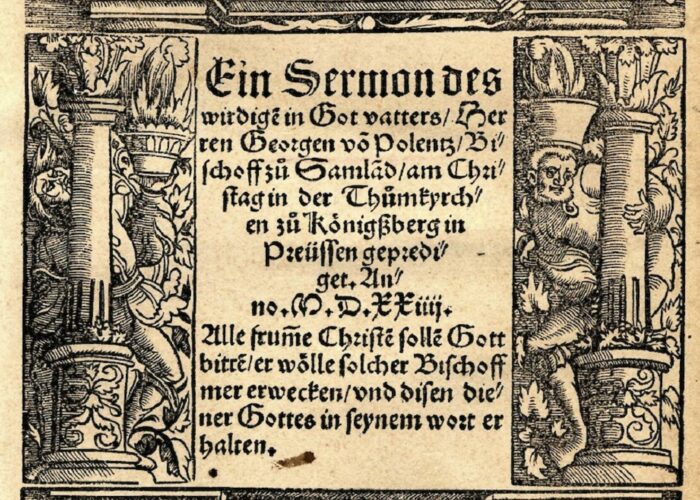 Ein Sermon des
wirdigẽ in Got vatters/ Her
ren Georgen võ Polentz/ Bi⸗
schoff zů Samlãd/ am Chri⸗
stag in der Thůmkyrch⸗
en zů Königßberg in
Preüssen gepredi⸗
get. An⸗
no. M. D. XXiiij.
Alle frum̃e Christẽ sollẽ Gott
bittẽ/ er wölle solcher Bischoff
mer erwecken/ vnd disen die⸗
ner Gottes in seynem wort er
halten.